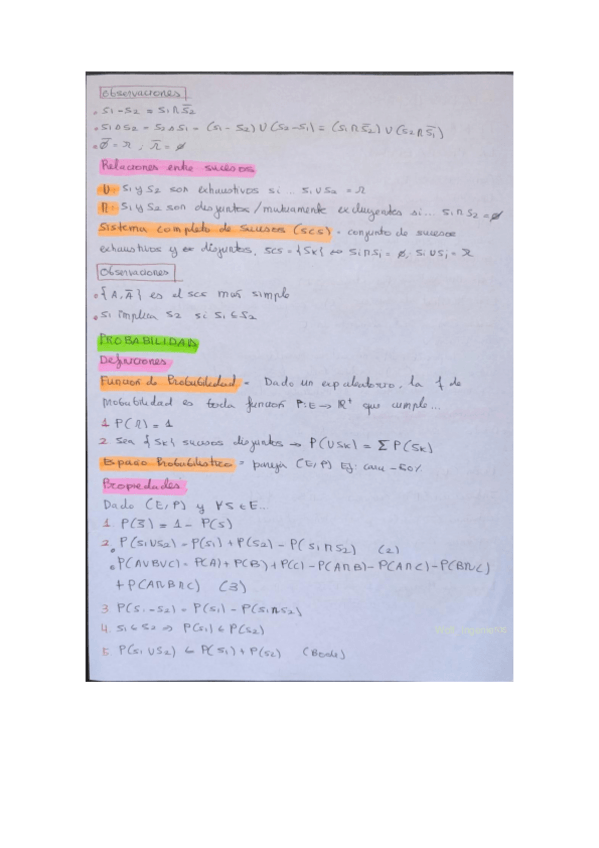 Observaciones
• S1-S2 = S1∩S̅2
• S1△S2 = S2△S1 = (S1-S2)∪(S2-S1) = (S1∩S̅2)∪(S2∩S̅1)
• ∅̅ = Ω ; Ω̅ = ∅
Relaciones entre sucesos
U: S1 y S2 son exhaustivos si... S1∪S2 = Ω
∩: S1 y S2 son disjuntos/mutuamente excluyentes si... S1∩S2 = ∅
Sistema completo de sucesos (SCS) = conjunto de sucesos
exhaustivos y disjuntos, SCS = {Sk} ⇔ Si∩Sj = ∅, Si∪Sj = Ω
Observaciones
• {A, A̅} es el SCS más simple
• S1 implica S2 si S1⊂S2
PROBABILIDAD
Definiciones
Función de Probabilidad = Dado un esp. aleatorio, la f de
probabilidad es toda función P:E→R⁺ que cumple...
1 P(Ω) = 1
2 Sean {Sk} sucesos disjuntos → P(USk) = ΣP(Sk)
Espacio Probabilístico = pareja (E,P) Ej: cara -50%
Propiedades
Dado (E,P) y ∀S∈E...
1. P(S̅) = 1 - P(S)
2. • P(S1∪S2) = P(S1) + P(S2) - P(S1∩S2) (2)
• P(A∪B∪C) = P(A) + P(B) + P(C) - P(A∩B) - P(A∩C) - P(B∩C)
+ P(A∩B∩C) (3)
3. P(S1-S2) = P(S1) - P(S1∩S2)
4. S1⊂S2 ⇒ P(S1) ≤ P(S2)
5. P(S1∪S2) ≤ P(S1) + P(S2) (Boole)